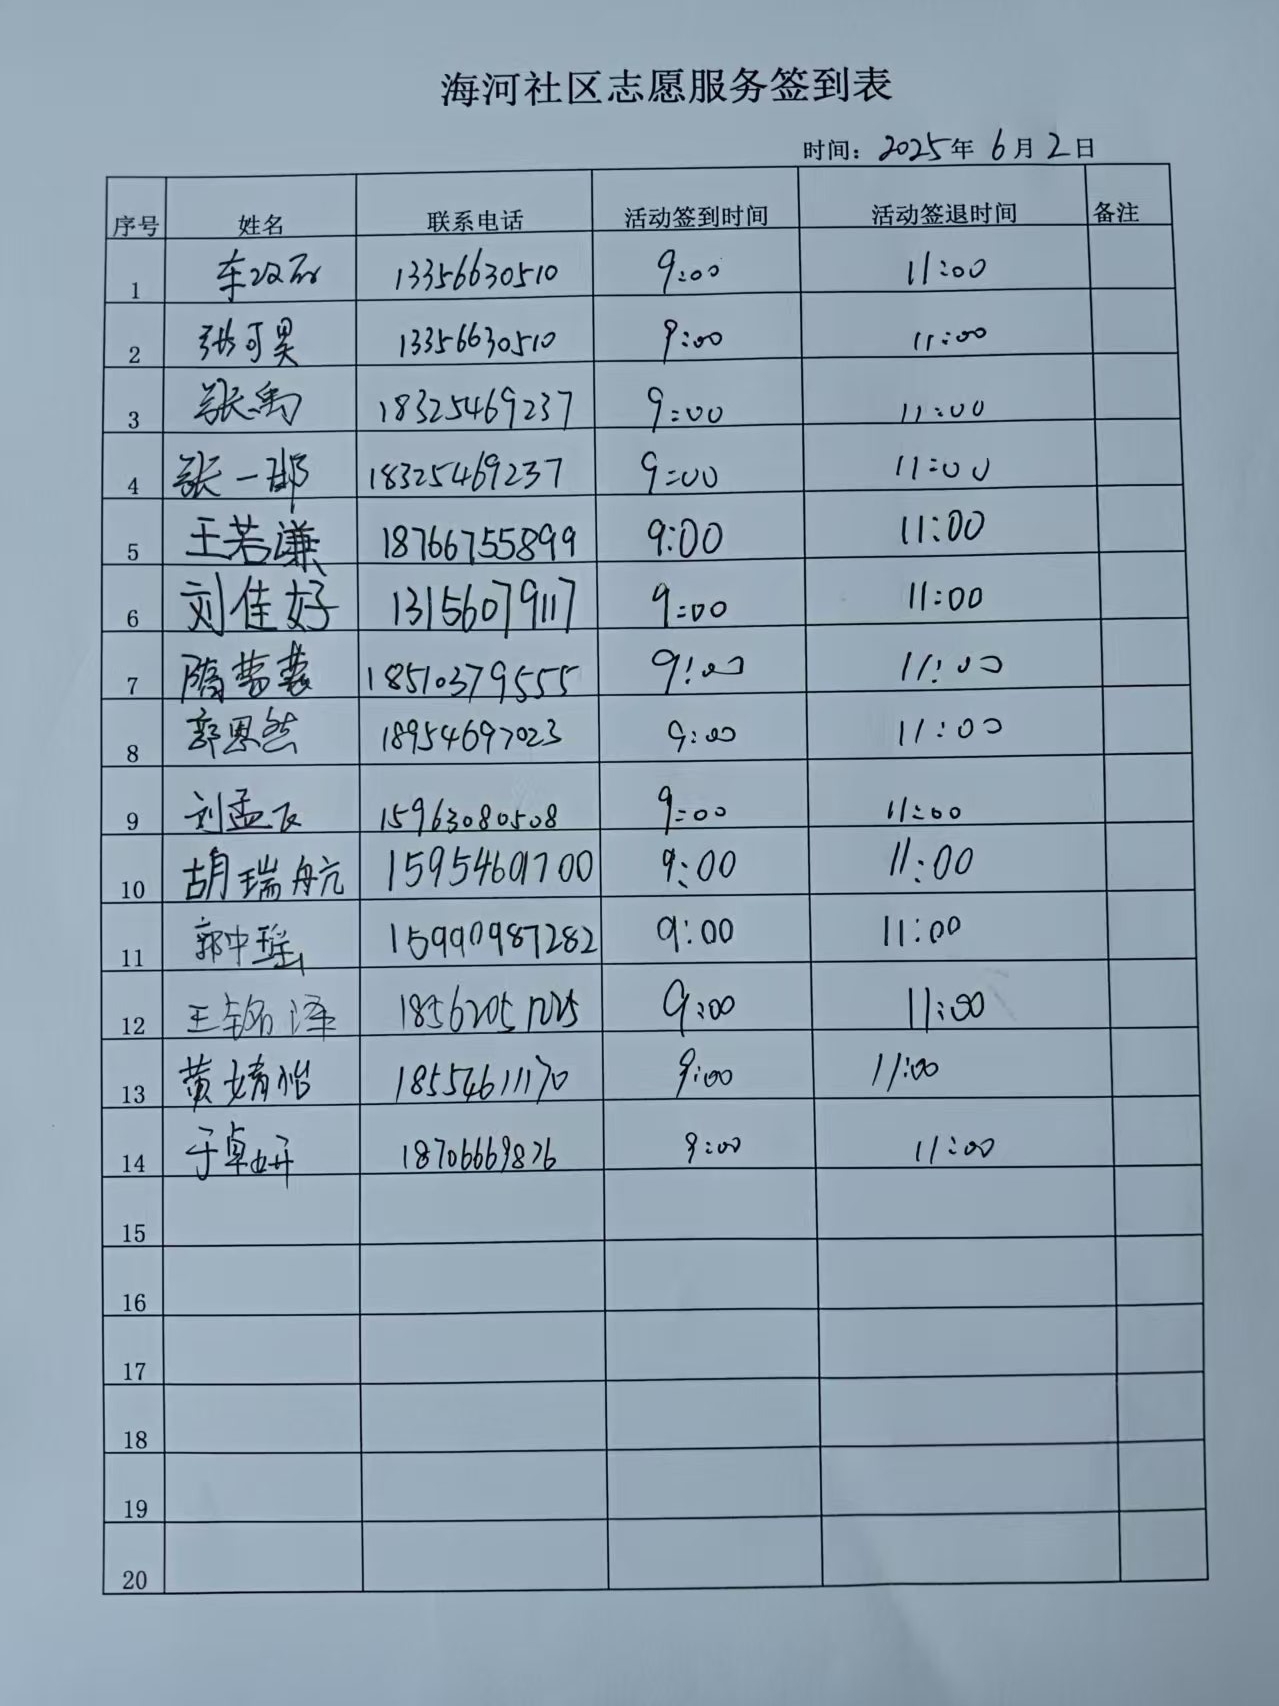 海河社区志愿服务签到表
时间：2025年 6月2日
序号 姓名 联系电话 活动签到时间 活动签退时间 备注
1 13356630510 9:00 11:00
2 张可昊 13356630510 9:00 11:00
3 张禹 18325469237 9:00 11:00
4 张一邯 18325469237 9:00 11:00
5 王若谦 18766755899 9:00 11:00
6 刘佳好 13156079117 9:00 11:00
7 18510379555 9:00 11:00
8 郭恩然 18954697023 9:00 11:00
9 刘孟 15963080508 9:00 11:00
10 胡瑞航 15954601700 9:00 11:00
11 郭中瑶 15990987282 9:00 11:00
12 王翰泽 18562051725 9:00 11:00
13 黄婧怡 18554611170 9:00 11:00
14 于卓妍 18706669876 9:00 11:00
15
16
17
18
19
20